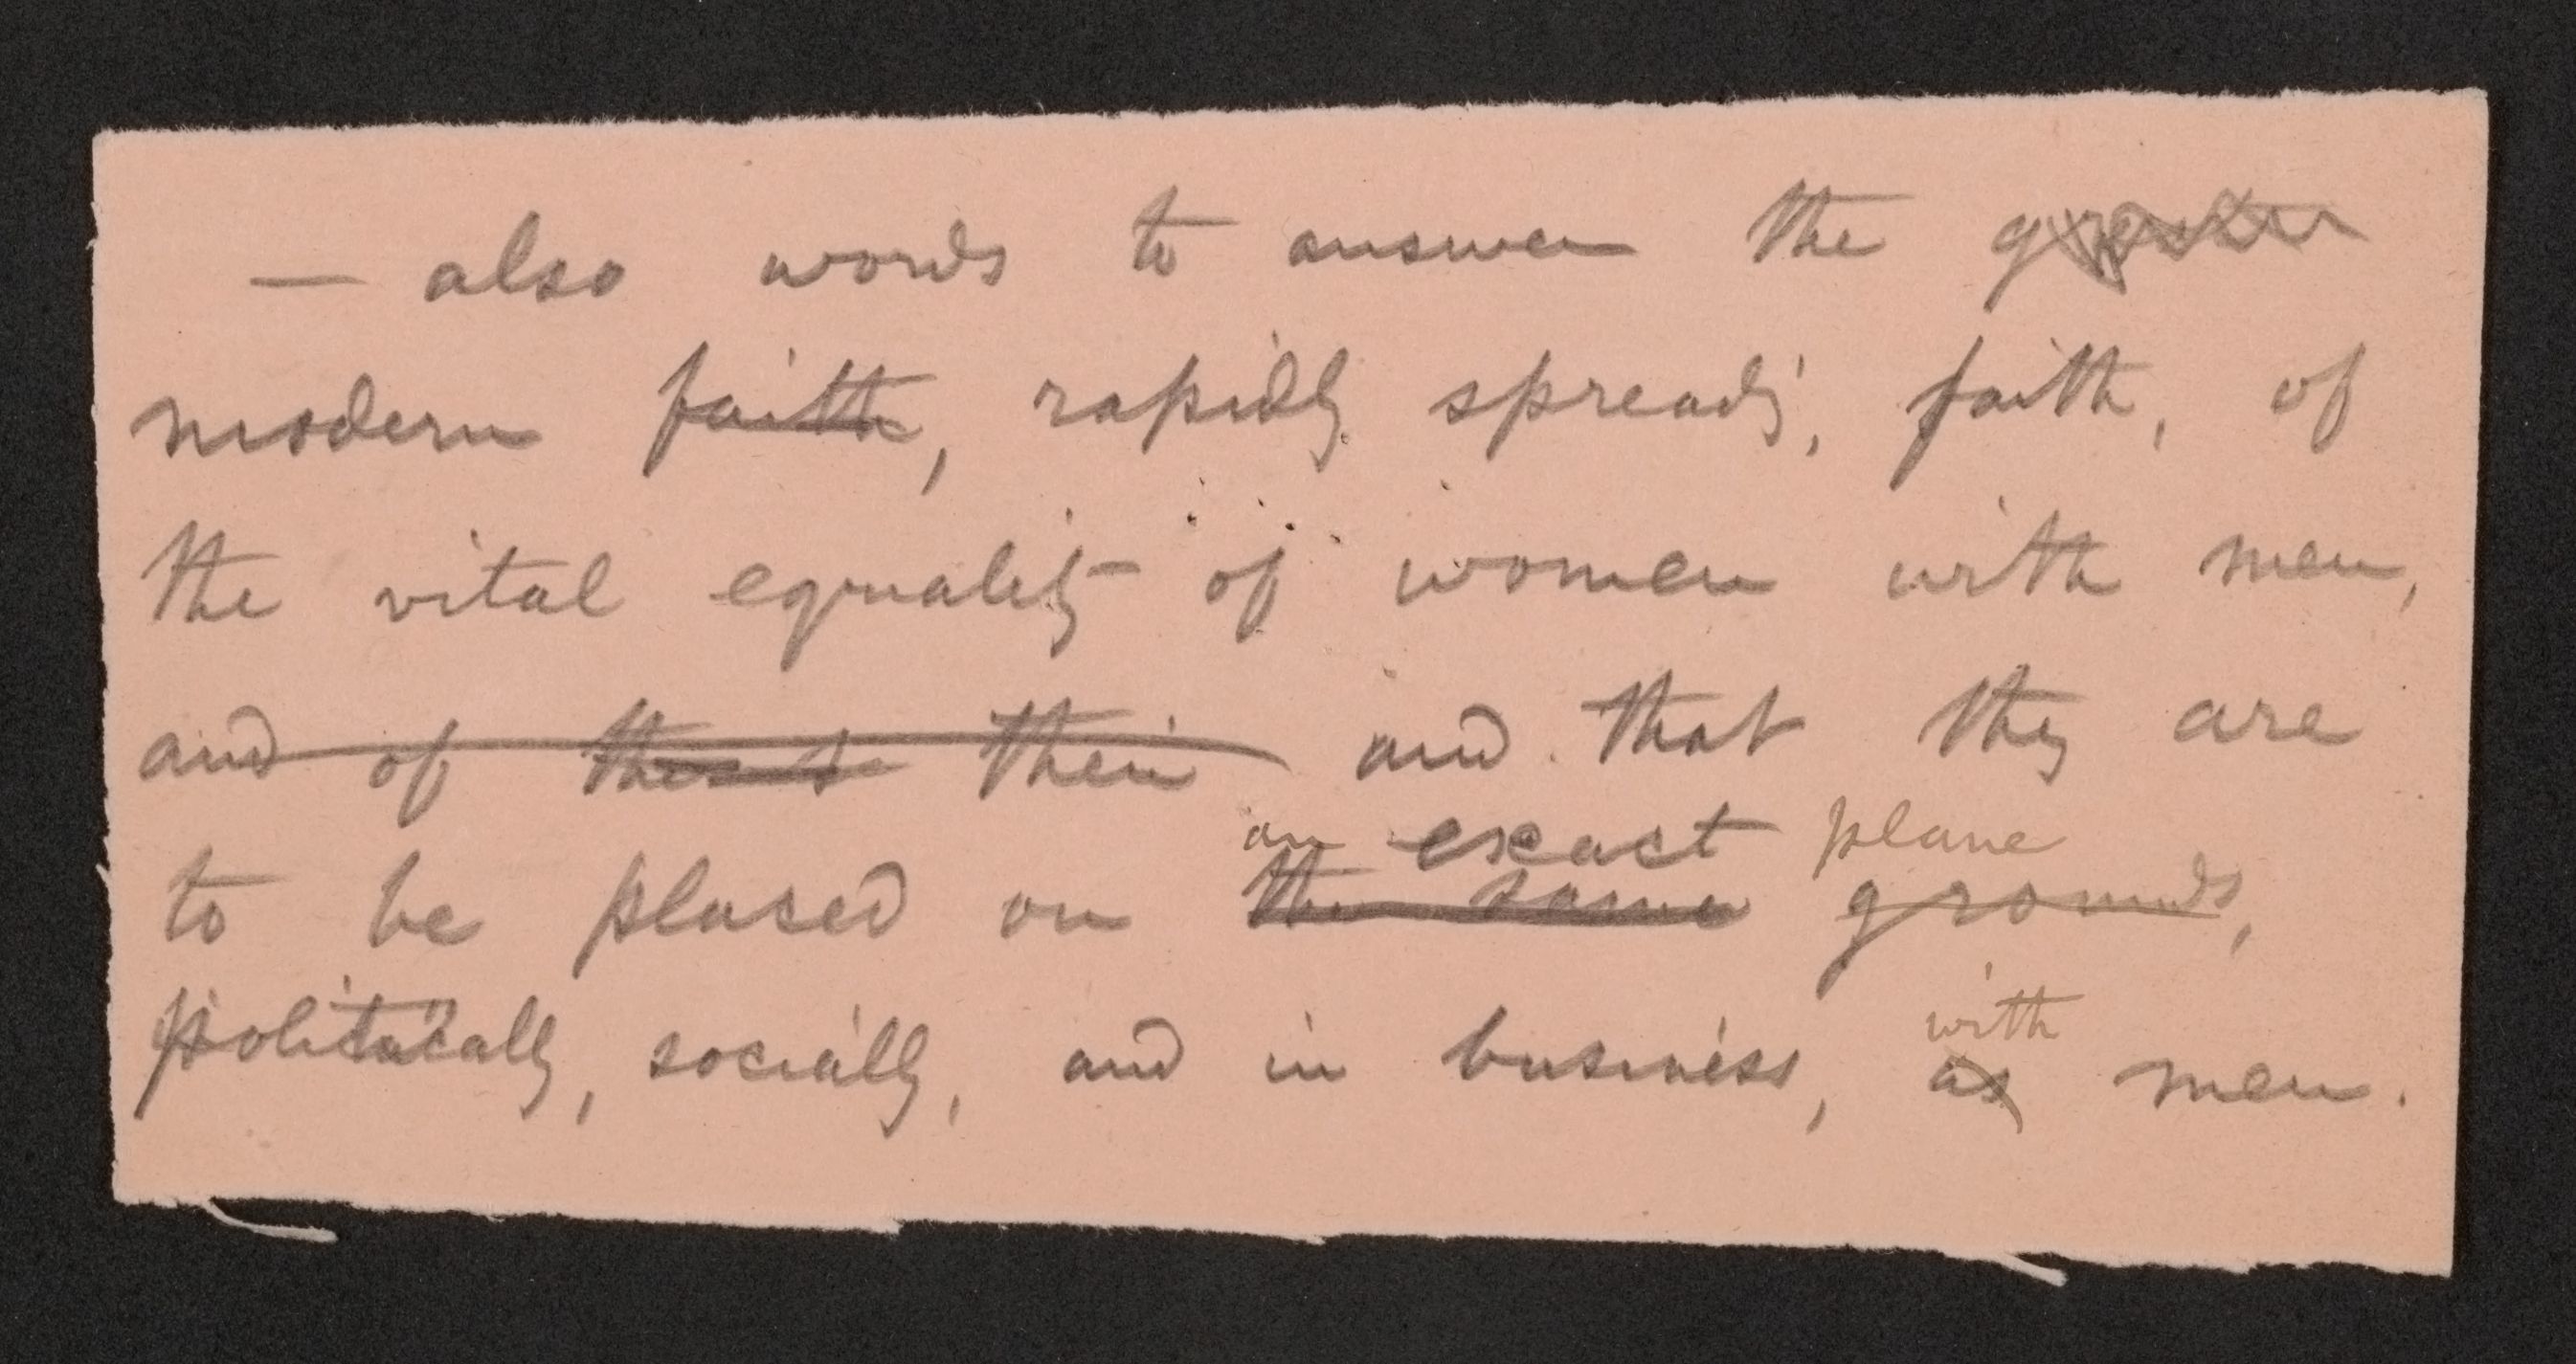 — also words to answer the
modern faith, rapidly spreadi', faith, of
the vital equality of women with men,
and of their and that they are
an exact plane
to be placed on the same grounds,
with
politically, socially, and in business, as men.